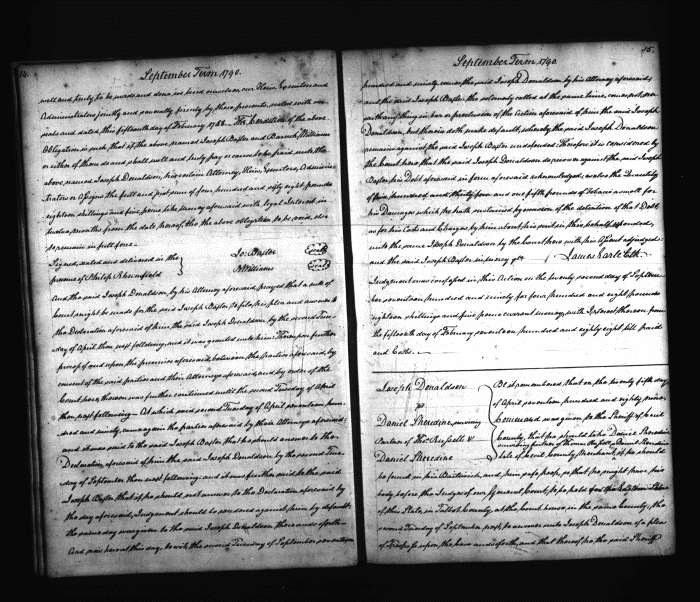 14.
September Term, 1790.
well and truly to be made and done we bind ourselves our Heirs, Executors and
Administrators jointly and severally firmly by these presents, sealed with our
seals and dated this fifteenth day of February 1788. The Condition of the above
Obligation is such, that if the above named Joseph Baster and Williams
or either of them do and shall well and truly pay or cause to be paid unto the
above named Joseph Donaldson, his certain Attorney, Heirs, Executors, Adminis-
trators or Assigns the full and just sum of four hundred and eight pounds
eighteen shillings and five pence like money aforesaid with legal Interest in
months from the date hereof, then the above obligation to be void, else
to remain in full force.
Signed, sealed and delivered in the
presence of Philip
Jos: Baster
B Williams
And the said Joseph Donaldson, by his Attorney aforesaid, prayed that a rule of
Court might be made for the said Joseph Baster, to file his plea and answer to
the Declaration aforesaid of him, the said Joseph Donaldson by the second Tues-
day of April then next following and it was granted unto him; Thereupon further
process of and upon the premises aforesaid, between the parties aforesaid, by
consent of the said parties and their Attorneys aforesaid, and by order of the
Court here, thereon was further continued until the second Tuesday of April
then next following — At which said second Tuesday of April seventeen hun-
dred and ninety, came again the parties aforesaid by their Attorneys aforesaid:
and it was said to the said Joseph Baster, that he should answer to the
Declaration, aforesaid of him the said Joseph Donaldson by the second Tues-
day of September then next following: and it was further said to the said
Joseph Baster, that if he should not answer to the Declaration aforesaid by
the day aforesaid, Judgement should be rendered against him by default:
the same day was given to the said Joseph Donaldson, there and so forth —
And now here at this day, to wit, the second Tuesday of September seventeen
15.
September Term, 1790
hundred and ninety, comes the said Joseph Donaldson by his Attorney aforesaid,
and the said Joseph Baster, tho' solemnly called at the same time, comes not, nor
saith anything in bar or preclusion of the action aforesaid of him the said Joseph
Donaldson, but therein doth make default, whereby the said Joseph Donaldson
remains against the said Joseph Baster undefended: Therefore it is considered by
the Court here, that the said Joseph Donaldson do recover against the said Joseph
Baster, his Debt aforesaid in form aforesaid acknowledged, as also the Quantity
of five hundred and thirty four and one fifth pounds of tobacco as well for
his Damages which he hath sustained by occasion of the detention of that Debt
as for his Costs and Charges by him about his suit in this behalf expended,
unto the same Joseph Donaldson by the Court here with his Assent adjudged:
and the said Joseph Baster in mercy &c. James Earle Clk.
Judgement was confessed in this Action on the twenty second day of Septem-
ber seventeen hundred and ninety for four hundred and eight pounds
eighteen shillings and five pence current money, with Interest thereon from
the fifteenth day of February seventeen hundred and eighty eight till paid
and Costs. —
Joseph Donaldson
vs
Daniel Sheredine, surviving
Partner of Thos Russell &
Daniel Sheredine
Be it remembered, that on the twenty fifth day
of April seventeen hundred and eighty nine,
Command was given, to the Sheriff of Cecil
County, that he should take Daniel Sheredine
surviving partner of Thomas Russell & Daniel Sheredine
late of Cecil County Merchant, if he should
be found in his Bailiwick, and him safe keep, so that he might have his
body before the Judges of our General Court, to be held for the Eastern Shore
of this State, in Talbot County, at the Court house, in the same County, the
second Tuesday of September next, to answer unto Joseph Donaldson of a plea
of Trespass upon the case and so forth, and that thereof he the said Sheriff